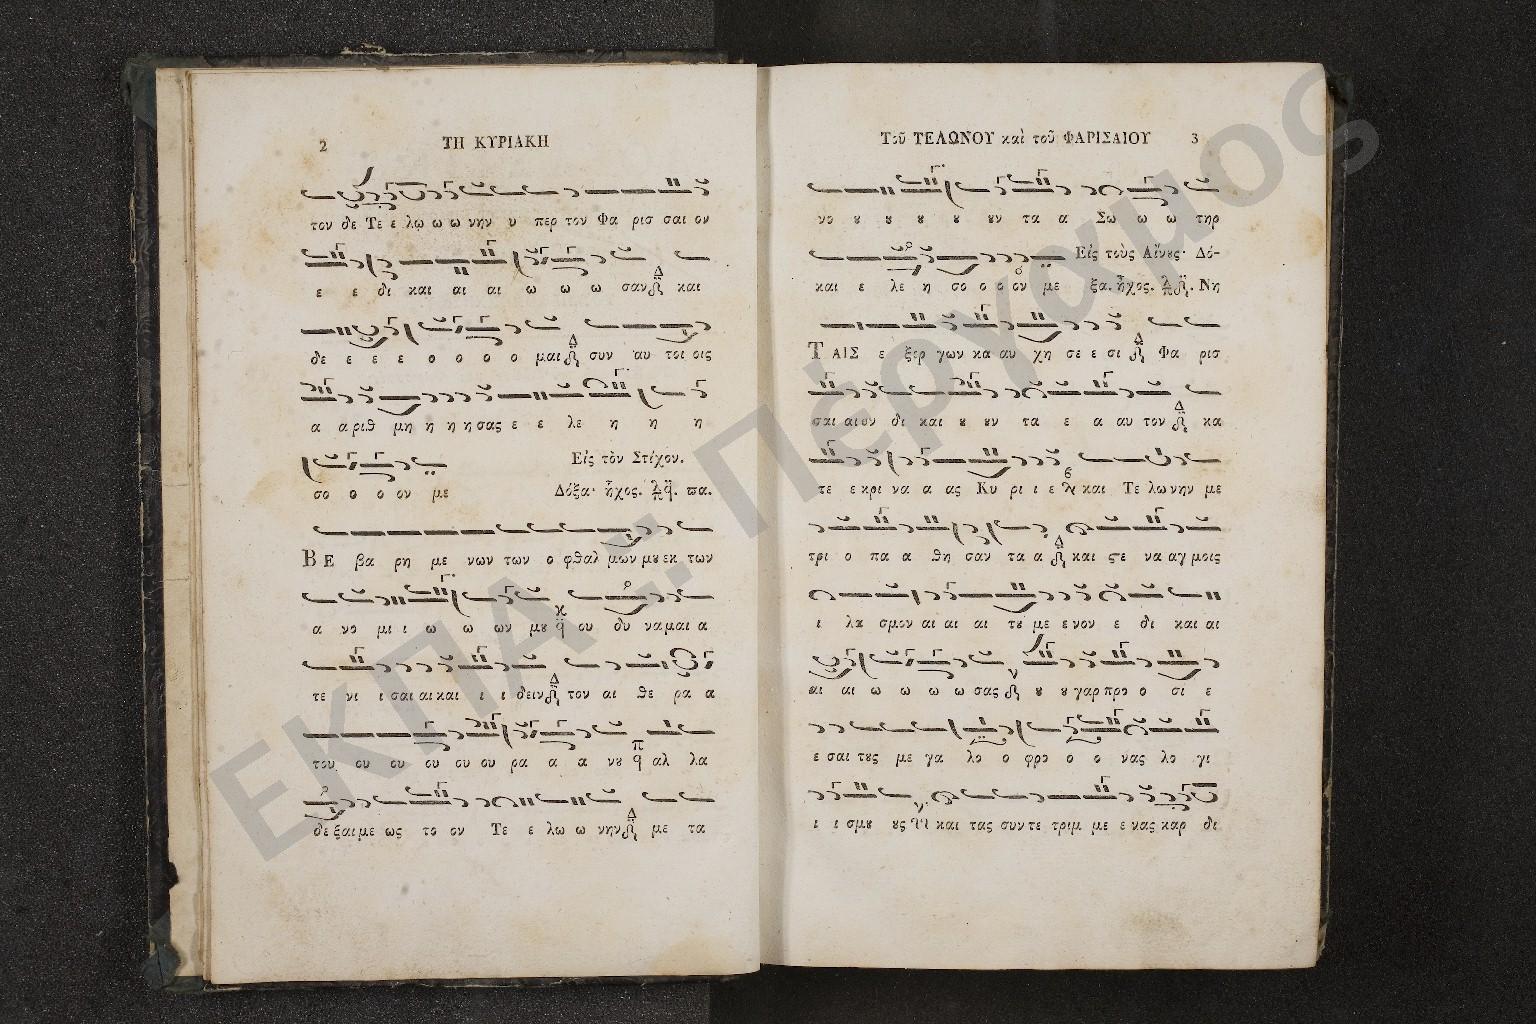 2 ΤΗ ΚΥΡΙΑΚΗ
τον δε Τε ε λω ω ω νην υ περ τον Φα ρισ σαι ον
ε ε δι και αι αι ω ω ω σαν και
δε ε ε ε ο ο ο ο μαι συν αυ τοι οις
α α ριθ μη η η η σας ε ε λε η η η
Εἰς τὸν Στίχον.
σο ο ο ον με Δόξα· ἦχος. πα.
ΒΕ βα ρη με νων των ο φθαλ μων μου εκ των
α νο μι ι ω ω ων μου ου δυ ναμαι α
τε νι ι σαι αι και ι ι δειν τον αι θε ρα α
του ου ου ου ου ου ρα α α νου αλ λα
δεξαι με ως το ον Τε ε λω ω νην με τα
Τοῦ ΤΕΛΩΝΟΥ καὶ τοῦ ΦΑΡΙΣΑΙΟΥ 3
νο ου ου ου ου ουν τα α Σω ω ω τηρ
Εἰς τοὺς Αἴνους· Δό-
και ε λε η σο ο ο ον με ξα. ἦχος. Νη
ΤΑΙΣ ε ξερ γων κα αυ χη σε ε σι Φα ρισ
σαι αι ον δι και ου ουν τα ε α αυ τον κα
τε ε κρι να α ας Κυ ρι ι ε και Τε λω νην με
τρι ο πα α θη σαν τα α και ϛε να αγ μοις
ι λα σμον αι αι αι του με ε νον ε δι και αι
αι αι ω ω ω ω σας ου ου γαρ προ ο σι ε
ε σαι τους με γα λο ο φρο ο ο νας λο γι
ι ι σμου ους και τας συν τε τριμ με ε νας καρ δι
ΕΚΠΑ :: Πέργαμος